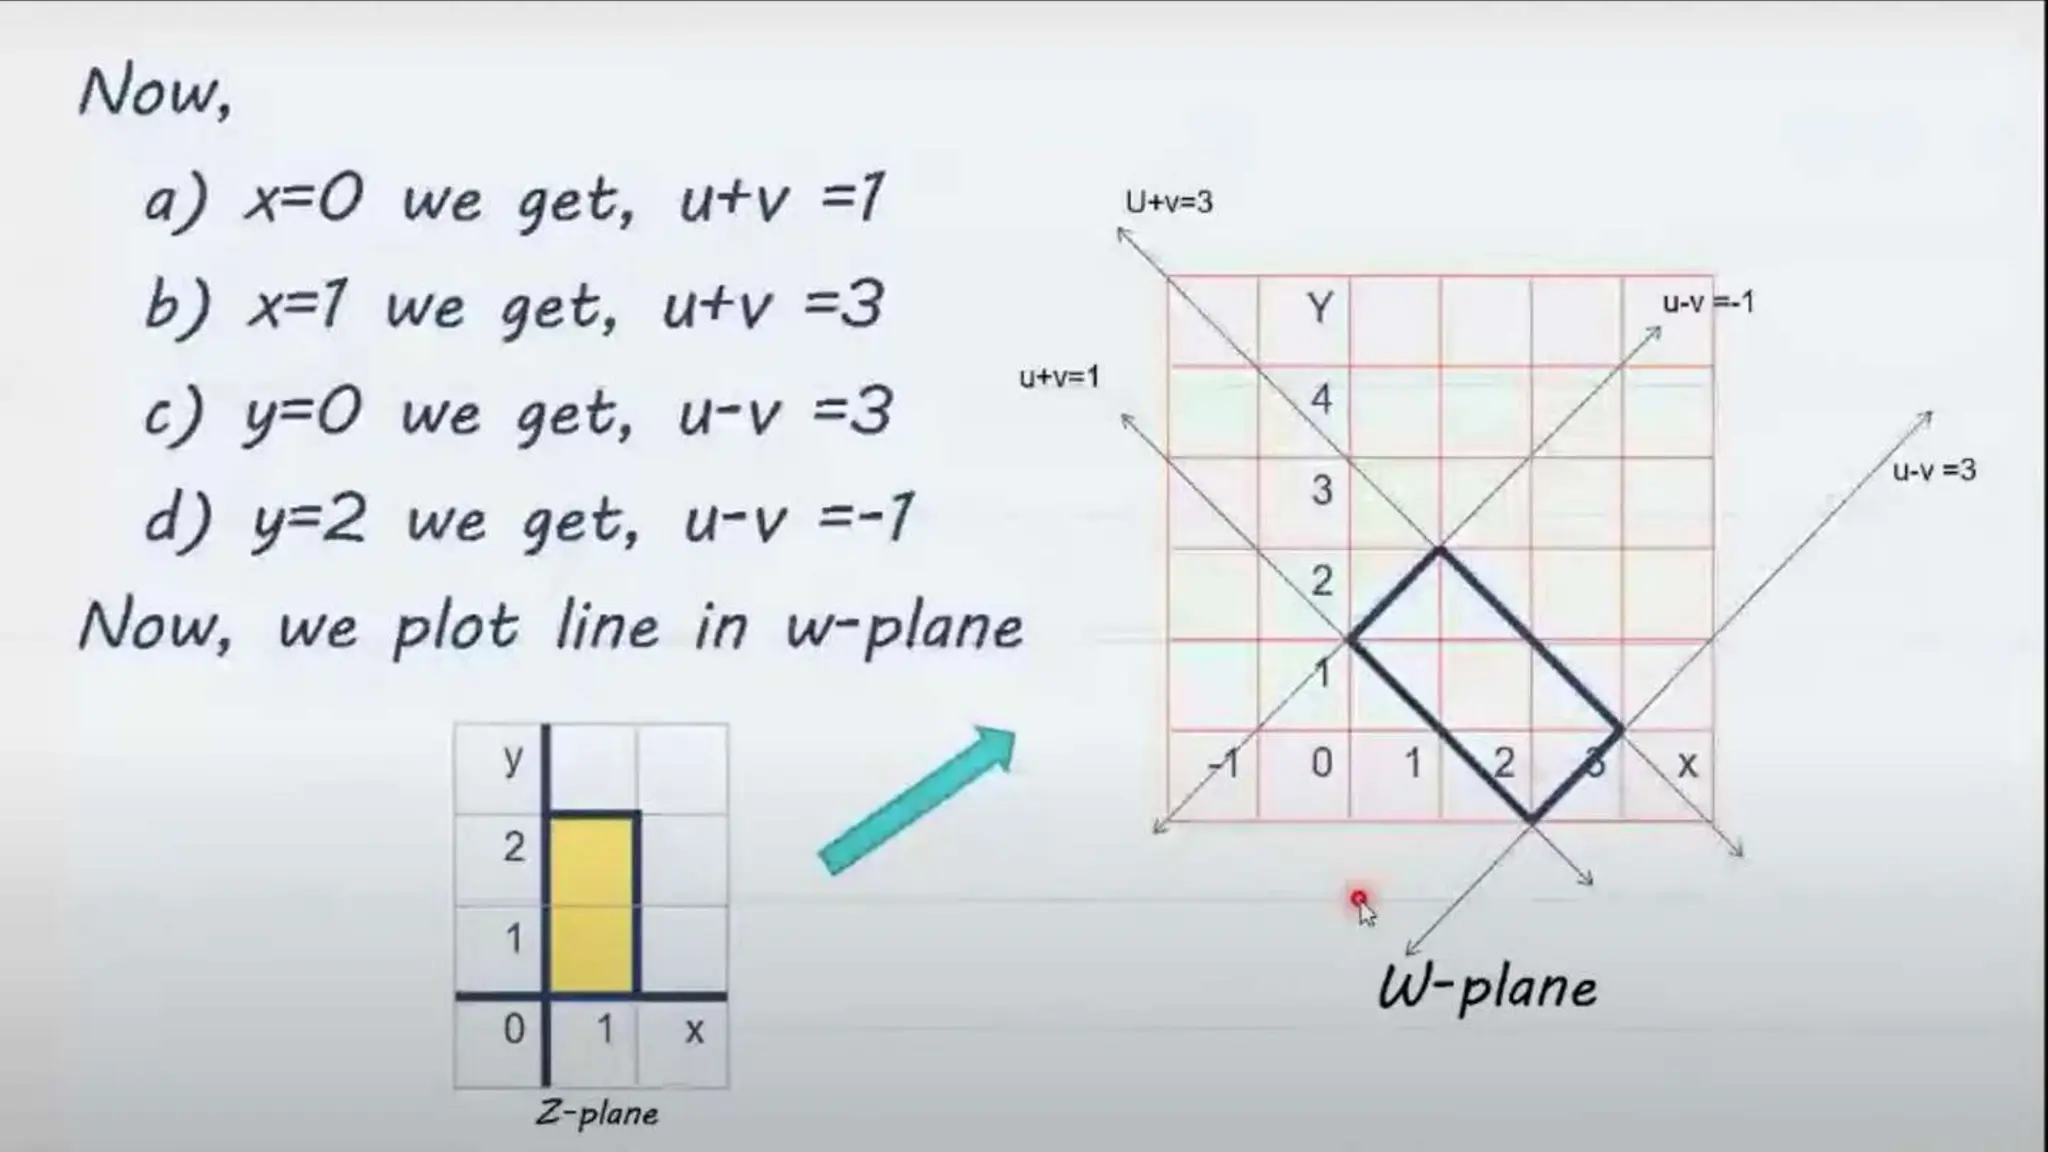 Now,
a) x=0 we get, u+v =1
b) x=1 we get, u+v =3
c) y=0 we get, u-v =3
d) y=2 we get, u-v =-1
Now, we plot line in w-plane
U+v=3
u-v =-1
u+v=1
u-v =3
Y
4
3
2
1
-1 0 1 2 3 x
W-plane
y
2
1
0 1 x
Z-plane